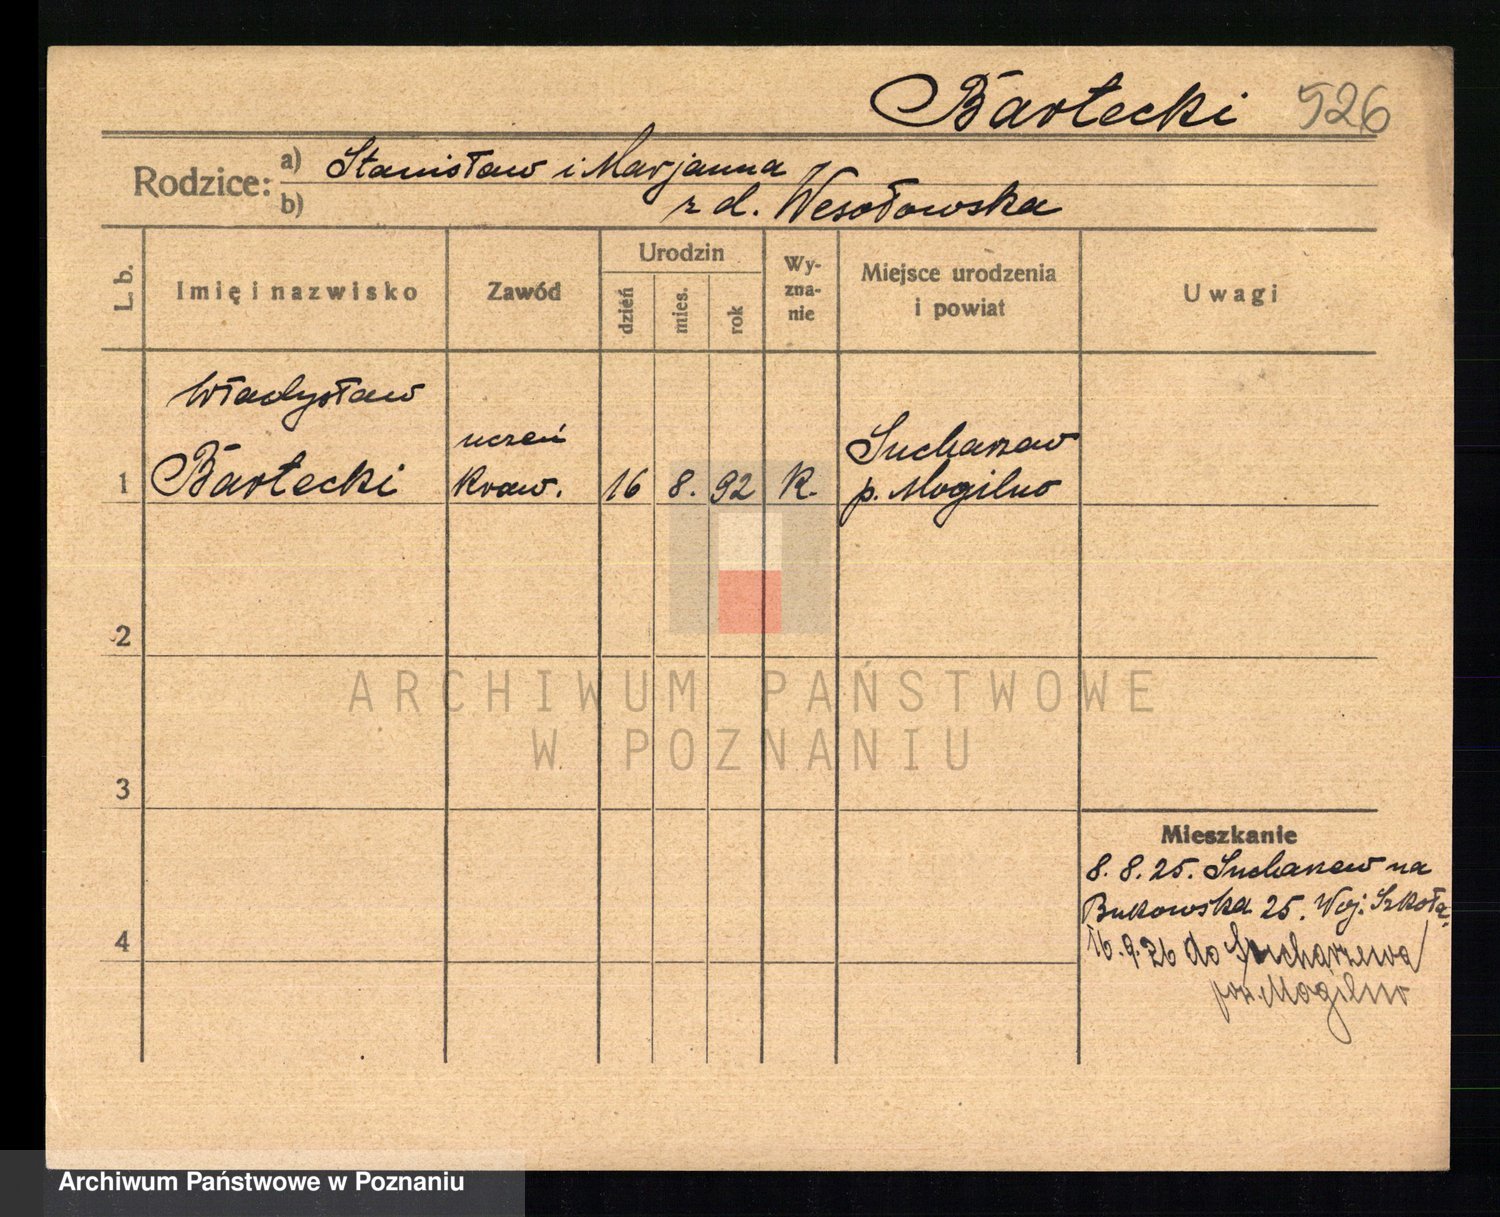 Bartecki 526
Rodzice: a) Stanisław i Marjanna
b) z d. Wesołowska
L. b.
Imię i nazwisko
Zawód
Urodzin
dzień
mies.
rok
Wy-
zna-
nie
Miejsce urodzenia
i powiat
Uwagi
Władysław
Bartecki
uczeń
Kraw.
1
16 8. 92 K.
Sucharzew
p. Mogilno
2
3
4
Mieszkanie
8. 8. 25. Sucharzew na
Bukowska 25. Woj. Szkoła,
16. 9. 26 do Sucharzewa
pow. Mogilno
ARCHIWUM PAŃSTWOWE
W POZNANIU
Archiwum Państwowe w Poznaniu